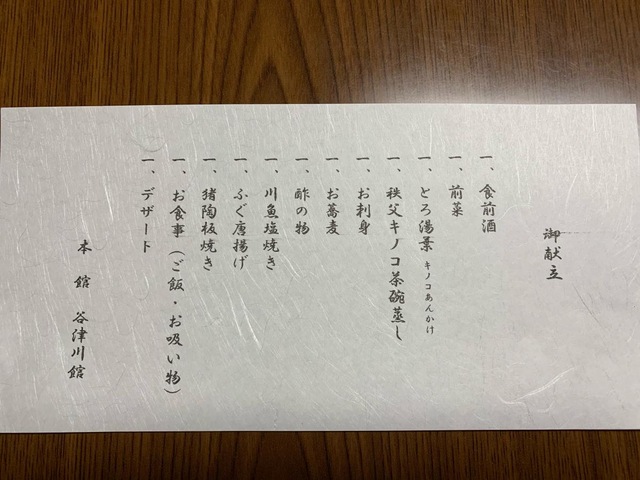 御献立
一、食前酒
一、前菜
一、とろ湯葉 キノコあんかけ
一、秩父キノコ茶碗蒸し
一、お刺身
一、お蕎麦
一、酢の物
一、川魚塩焼き
一、ふぐ唐揚げ
一、猪陶板焼き
一、お食事（ご飯・お吸い物）
一、デザート
本館 谷津川館